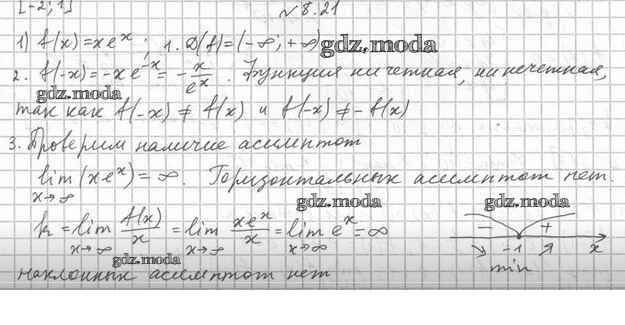 [-2; 1]
№8.21
1) f(x)=xeˣ; 1. D(f)=(-∞; +∞)
gdz.moda
2. f(-x)=-xe⁻ˣ=-x/eˣ. Функция ни четная, ни нечетная,
gdz.moda
так как f(-x)≠f(x) и f(-x)≠-f(x)
3. Проверим наличие асимптот
lim x→∞ (xeˣ)=∞. Горизонтальных асимптот нет.
gdz.moda
gdz.moda
k=lim x→∞ f(x)/x = lim x→∞ xeˣ/x = lim x→∞ eˣ=∞
- +
-1 x
min
gdz.moda
наклонных асимптот нет